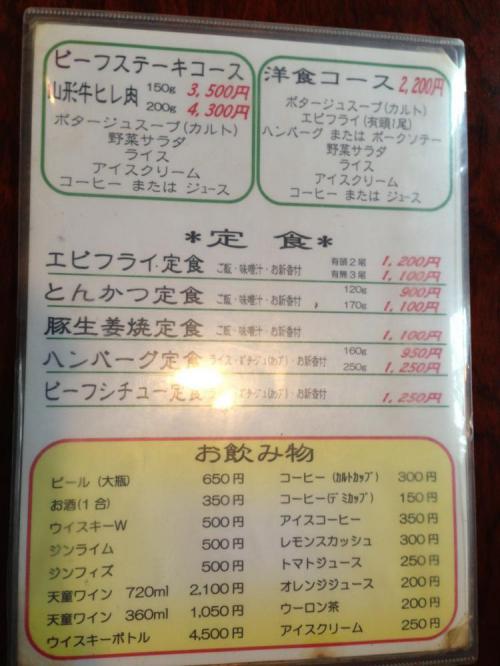 ビーフステーキコース
山形牛ヒレ肉 150g 3,500円
200g 4,300円
ポタージュスープ(カルト)
野菜サラダ
ライス
アイスクリーム
コーヒー または ジュース
洋食コース 2,200円
ポタージュスープ(カルト)
エビフライ(有頭1尾)
ハンバーグ または ポークソテー
野菜サラダ
ライス
アイスクリーム
コーヒー または ジュース
*定 食*
エビフライ定食 ご飯・味噌汁・お新香付 有頭2尾 1,200円
有無3尾 1,100円
とんかつ定食 ご飯・味噌汁・お新香付 120g 900円
170g 1,100円
豚生姜焼定食 ご飯・味噌汁・お新香付 1,100円
ハンバーグ定食 ライス・ポタージュ(カップ)・お新香付 160g 950円
250g 1,250円
ビーフシチュー定食 ・お新香付 1,250円
お飲み物
ビール (大瓶) 650円
お酒(1合) 350円
ウイスキーW 500円
ジンライム 500円
ジンフィズ 500円
天童ワイン 720ml 2,100円
天童ワイン 360ml 1,050円
ウイスキーボトル 4,500円
コーヒー (カルトカップ) 300円
コーヒー(デミカップ) 150円
アイスコーヒー 350円
レモンスカッシュ 300円
トマトジュース 250円
オレンジジュース 200円
ウーロン茶 200円
アイスクリーム 250円